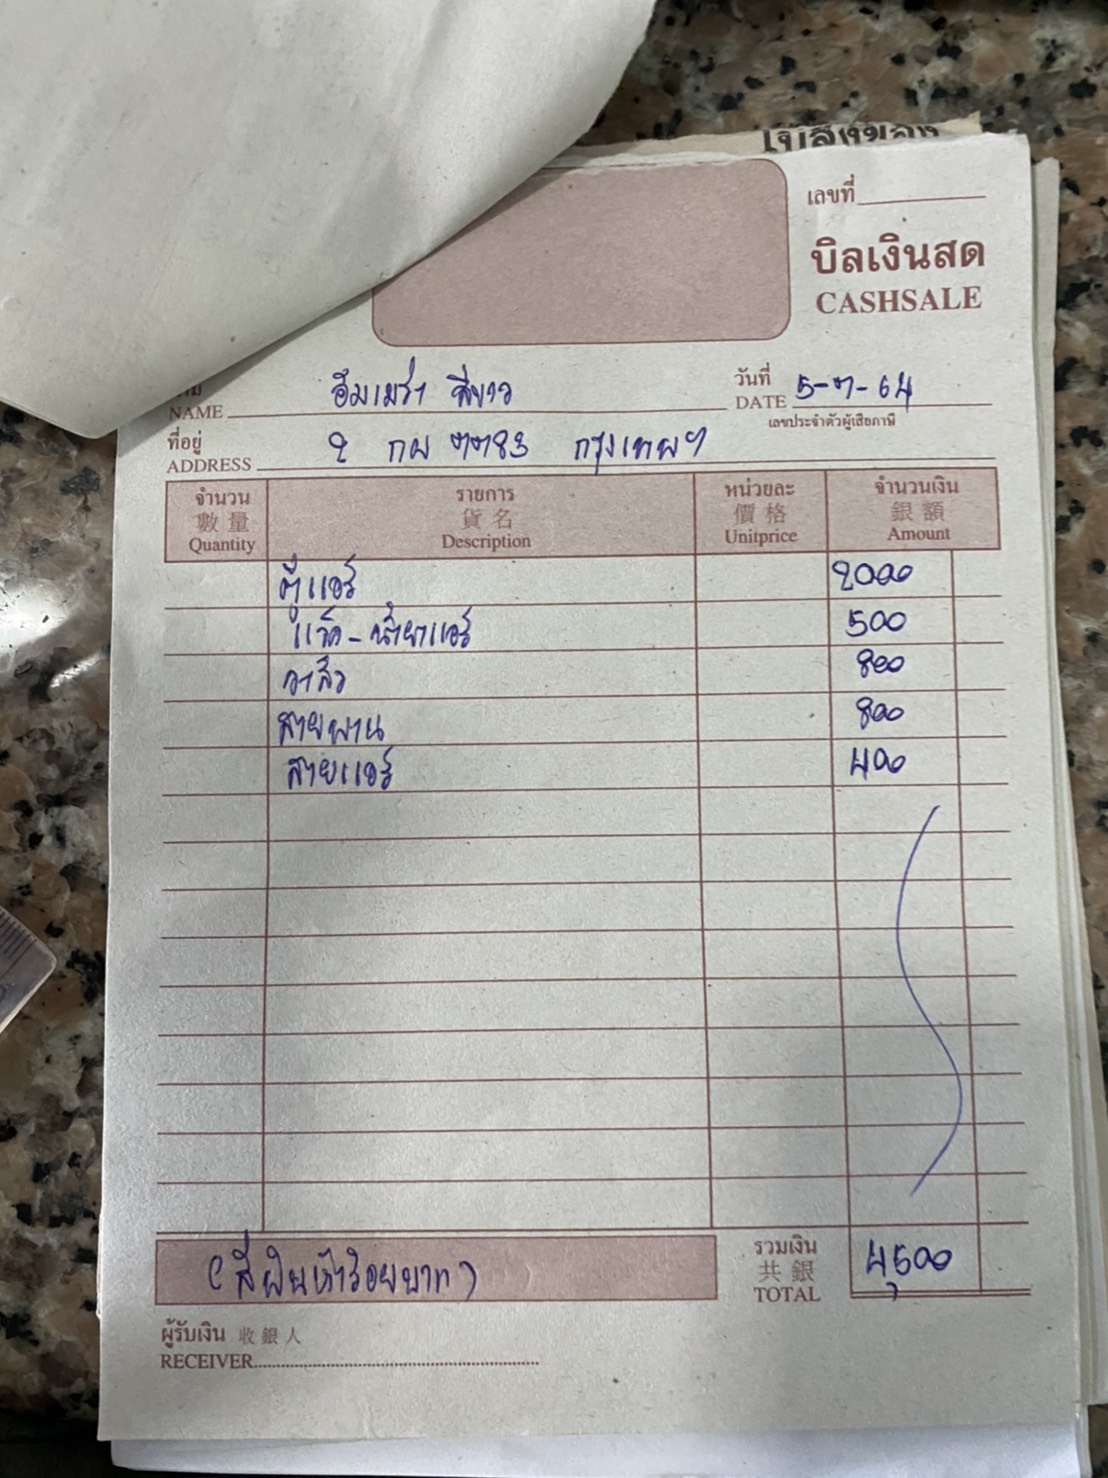 ใบส่งของ
เลขที่
บิลเงินสด
CASHSALE
NAME อิมเมร่า สีขาว
วันที่
DATE 5-๗-64
เลขประจำตัวผู้เสียภาษี
ที่อยู่
ADDRESS 2 กผ ๗๗83 กรุงเทพฯ
จำนวน รายการ หน่วยละ จำนวนเงิน
數量 貨名 價格 銀額
Quantity Description Unitprice Amount
ตู้แอร์ 2000
แว็ค-น้ำยาแอร์ 500
วาล์ว 800
สายพาน 800
สายแอร์ 400
(สี่พันห้าร้อยบาท)
รวมเงิน
共銀
TOTAL 4,500
ผู้รับเงิน 收銀人
RECEIVER